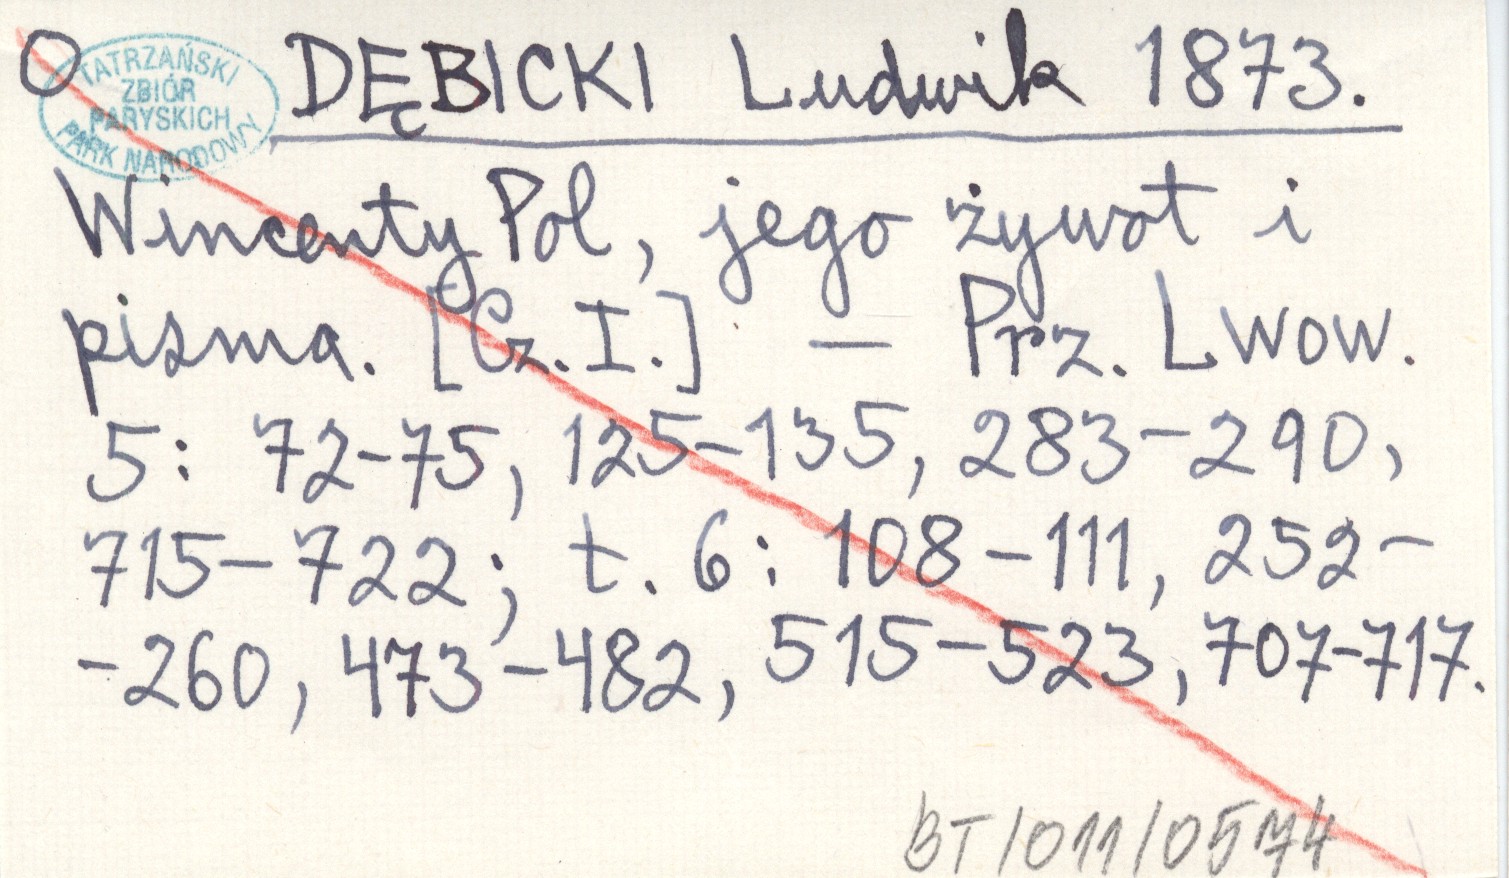 O
TATRZAŃSKI
ZBIÓR
PARYSKICH
PARK NARODOWY
DĘBICKI Ludwik 1873.
Wincenty Pol, jego żywot i
pisma. [Cz. I.] — Prz. Lwow.
5: 72-75, 125-135, 283-290,
715-722; t. 6: 108-111, 252-
-260, 473-482, 515-523, 707-717.
BT/011/0574